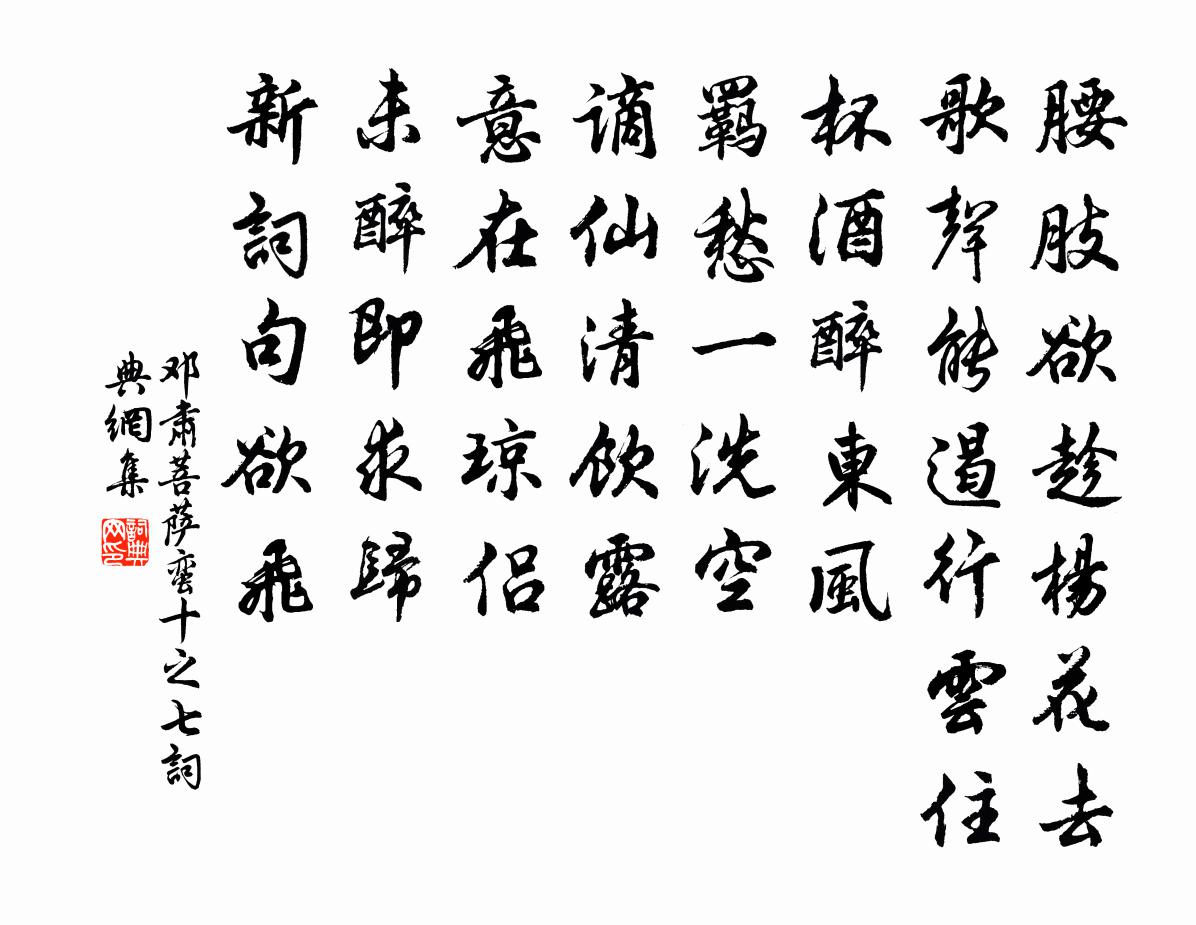 腰肢欲趁楊花去
歌聲能遏行雲住
杯酒醉東風
羈愁一洗空
谪仙清飲露
意在飛琼侣
未醉即求歸
新詞句欲飛
邓肃菩萨蛮十之七詞
典網集
詞典网印